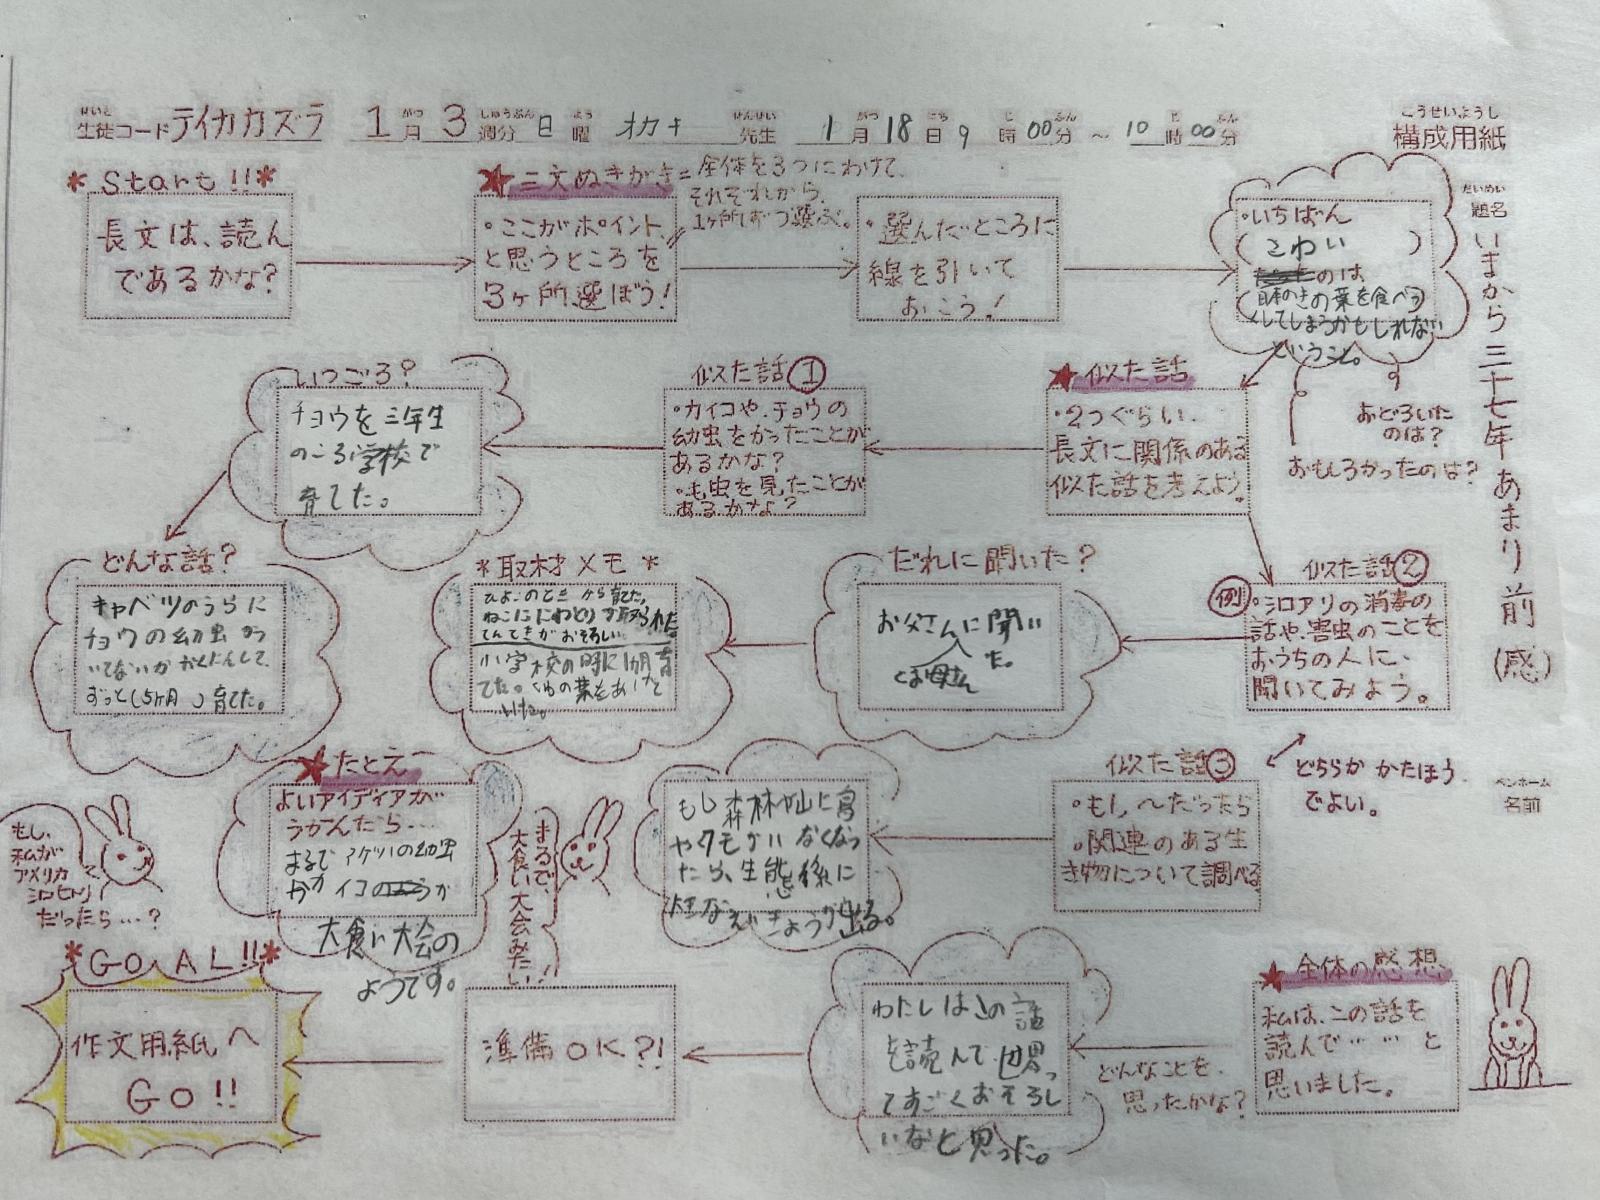 こうせいようし
構成用紙
せいと がつ しゅうぶん よう せんせい がつ にち じ ふん じ ふん
生徒コード テイカカズラ 1月3週分 日曜 オカキ 先生 1月18日9時00分〜10時00分
だいめい
題名
いまから三十七年あまり前(感)
ペンネーム
名前
*Start!!*
長文は、読ん
であるかな?
★三文ぬきがき=全体を3つにわけて、
それぞれから、
1ヶ所ずつ選ぶ。
・ここがポイント、
と思うところを
3ヶ所選ぼう!
・選んだところに
線を引いて
おこう!
・いちばん
(こわい)
のは
日本のきの葉を食べつ
くしてしまうかもしれない
ということ。
おどろいた
のは?
おもしろかったのは?
★似た話
・2つぐらい、
長文に関係のある
似た話を考えよう。
似た話①
・カイコや、チョウの
幼虫をかったことが
あるかな?
・毛虫を見たことが
あるかなぁ?
いつごろ?
チョウを三年生
のころ学校で
育てた。
どんな話?
キャベツのうらに
チョウの幼虫がつ
いてないかかくにんして、
ずっと(5ヶ月)育てた。
似た話②
例
・シロアリの消毒の
話や、害虫のことを
おうちの人に、
聞いてみよう。
どちらかかたほう
でよい。
だれに聞いた?
お父さんに聞い
た。
とお母さん
*取材メモ*
ひよこのときから育てた。
ねこににわとりが取られた
てんてきがおそろしい。
小学校の時に1ヶ月育
てた。くわの葉をあげて
いた。
似た話③
・もし〜だったら
・関連のある生
き物について調べる
もし森林や山に鳥
やクモがいなくなっ
たら、生態係に
大きなえいきょうが出る。
★たとえ
よいアイディアが
うかんだら…
まるでアゲハの幼虫
やカイコのようが
大食い大会の
ようです。
まるで、
大食い大会みたい!!
もし、
私が
アメリカ
シロヒトリ
だったら…?
★全体の感想
私は、この話を
読んで……と
思いました。
どんなことを、
思ったかな?
わたしはこの話
を読んで世界っ
てすごくおそろし
いなと思った。
準備OK?!
*GOAL!!*
作文用紙へ
GO!!